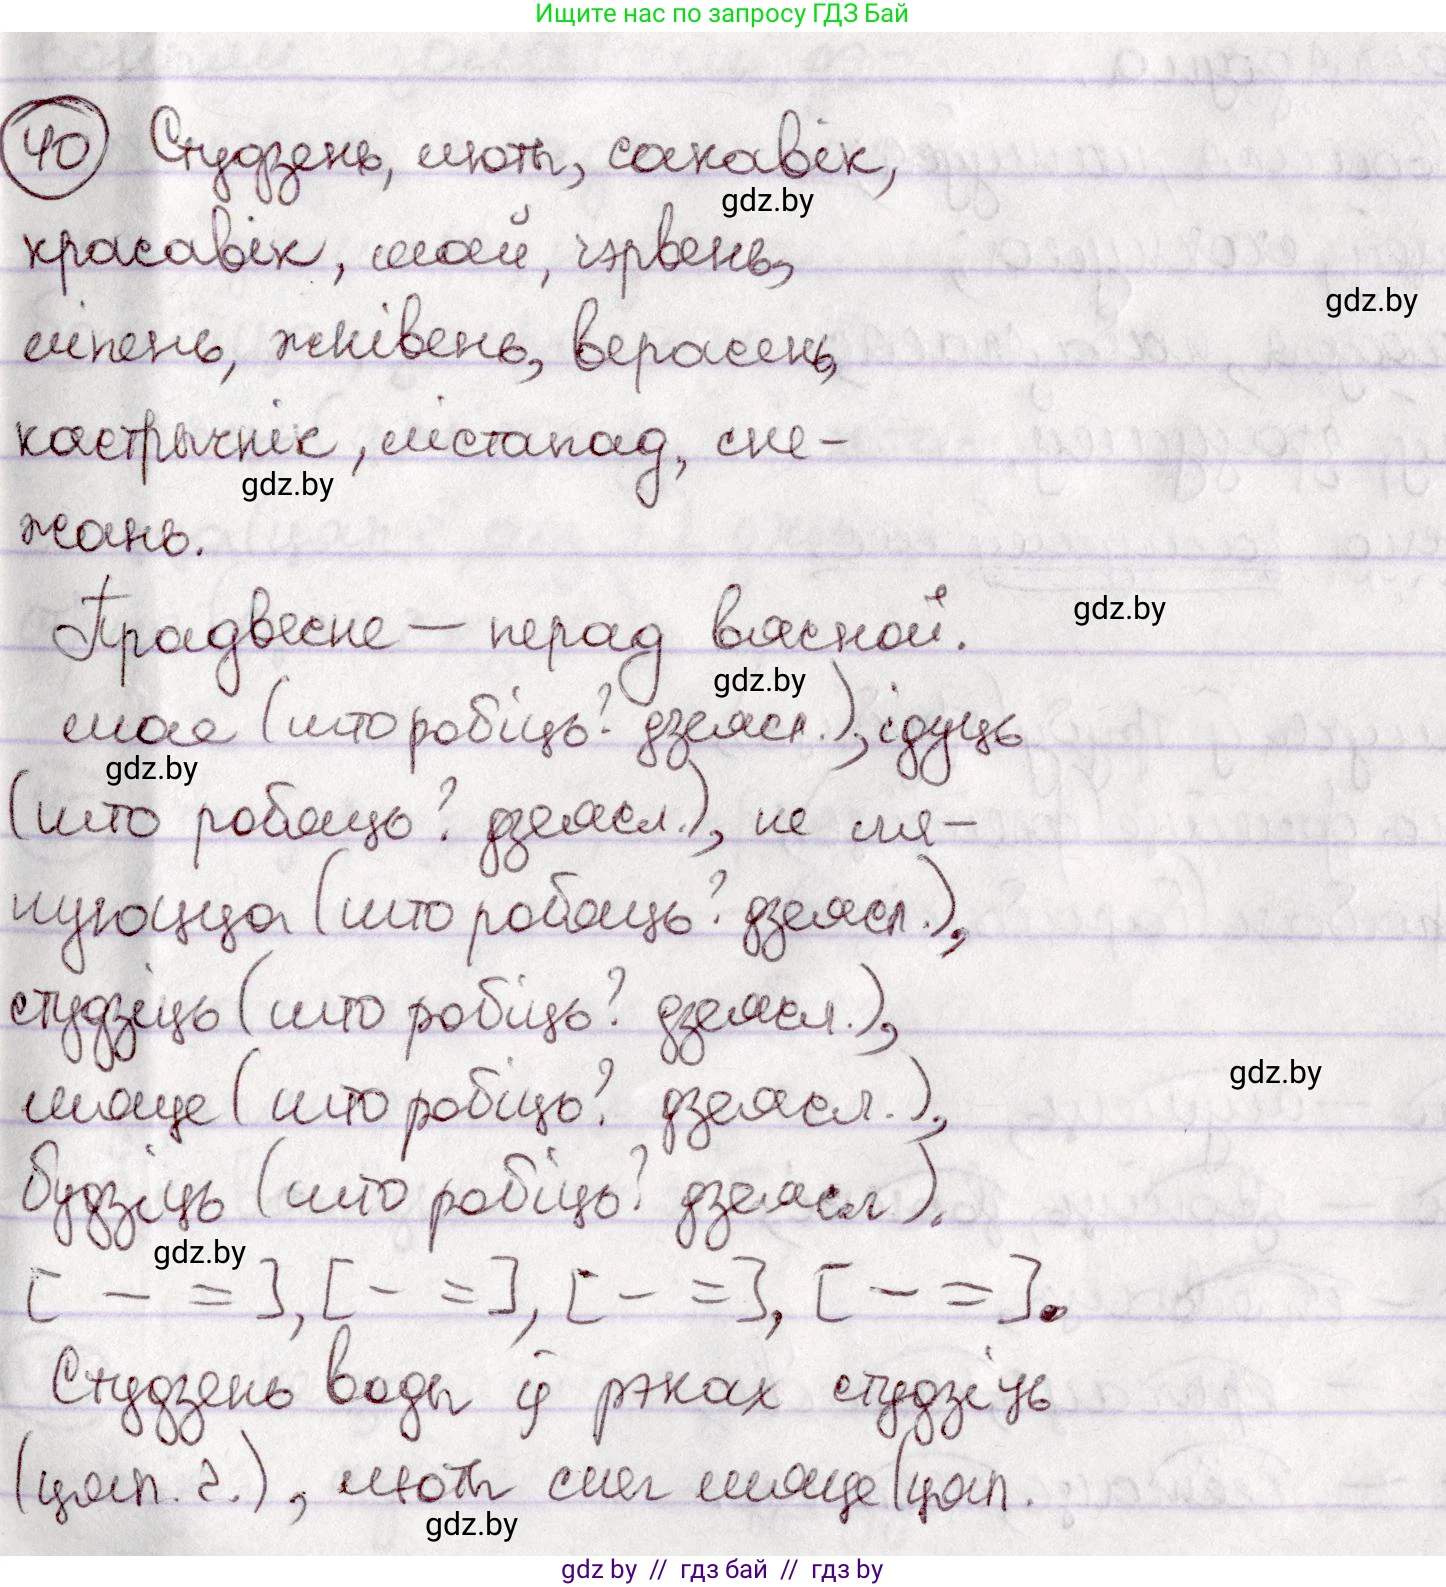 Ищите нас по запросу ГДЗ Бай
40 Студзень, люты, сакавік,
gdz.by
красавік, май, чэрвень,
gdz.by
ліпень, жнівень, верасень,
кастрычнік, лістапад, сне-
gdz.by
жань.
Прадвесне — перад вясной.
gdz.by
gdz.by
мае (што робіць? дзеясл.), ідуць
gdz.by
(што робяць? дзеясл.), не мя-
нуюцца (што робяць? дзеясл.),
студзіць (што робіць? дзеясл.),
gdz.by
мяце (што робіць? дзеясл.),
будзіць (што робіць? дзеясл.).
gdz.by
[ — = ], [ - = ], [ - = ], [ — = ].
Студзень воды ў рэках студзіць
(цяп. ч.), люты снег мяце (цяп.
gdz.by
gdz by // гдз бай // гдз by